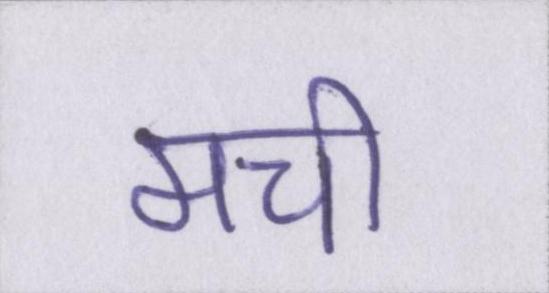 मची